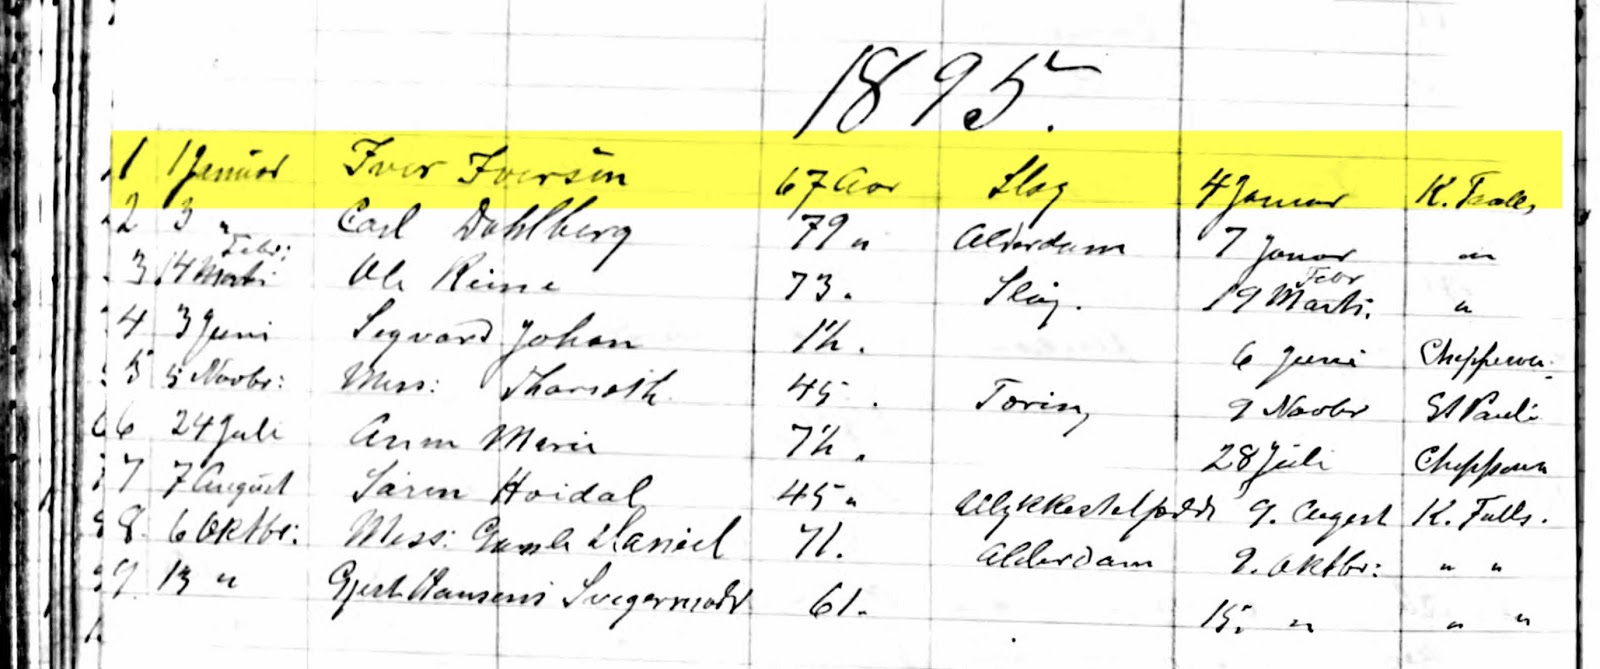 1895.
1 1 Januar Iver Iversen 67 Aar Slag 4 Januar K. Falls
2 3 " Carl Dahlberg 79 " Alderdom 7 Januar "
Febr: Febr
3 14 Marti Ole Reine 73 " Slag. 19 Marti. "
4 3 Juni Segvard Johan 1½ . 6 Juni Chippewa
5 5 Novbr: Mrs: 45 . 9 Novbr St Pauli
6 24 Juli Ann Marie 7½ . 28 Juli Chippewa
7 7 August Sören Hoidal 45 " 9. August K. Falls.
8. 6 Oktbr: Mess: 71. Alderdom 9. Oktbr: " "
9. 13 " Gjert Hansens Svigermoder 61. 15. " " "